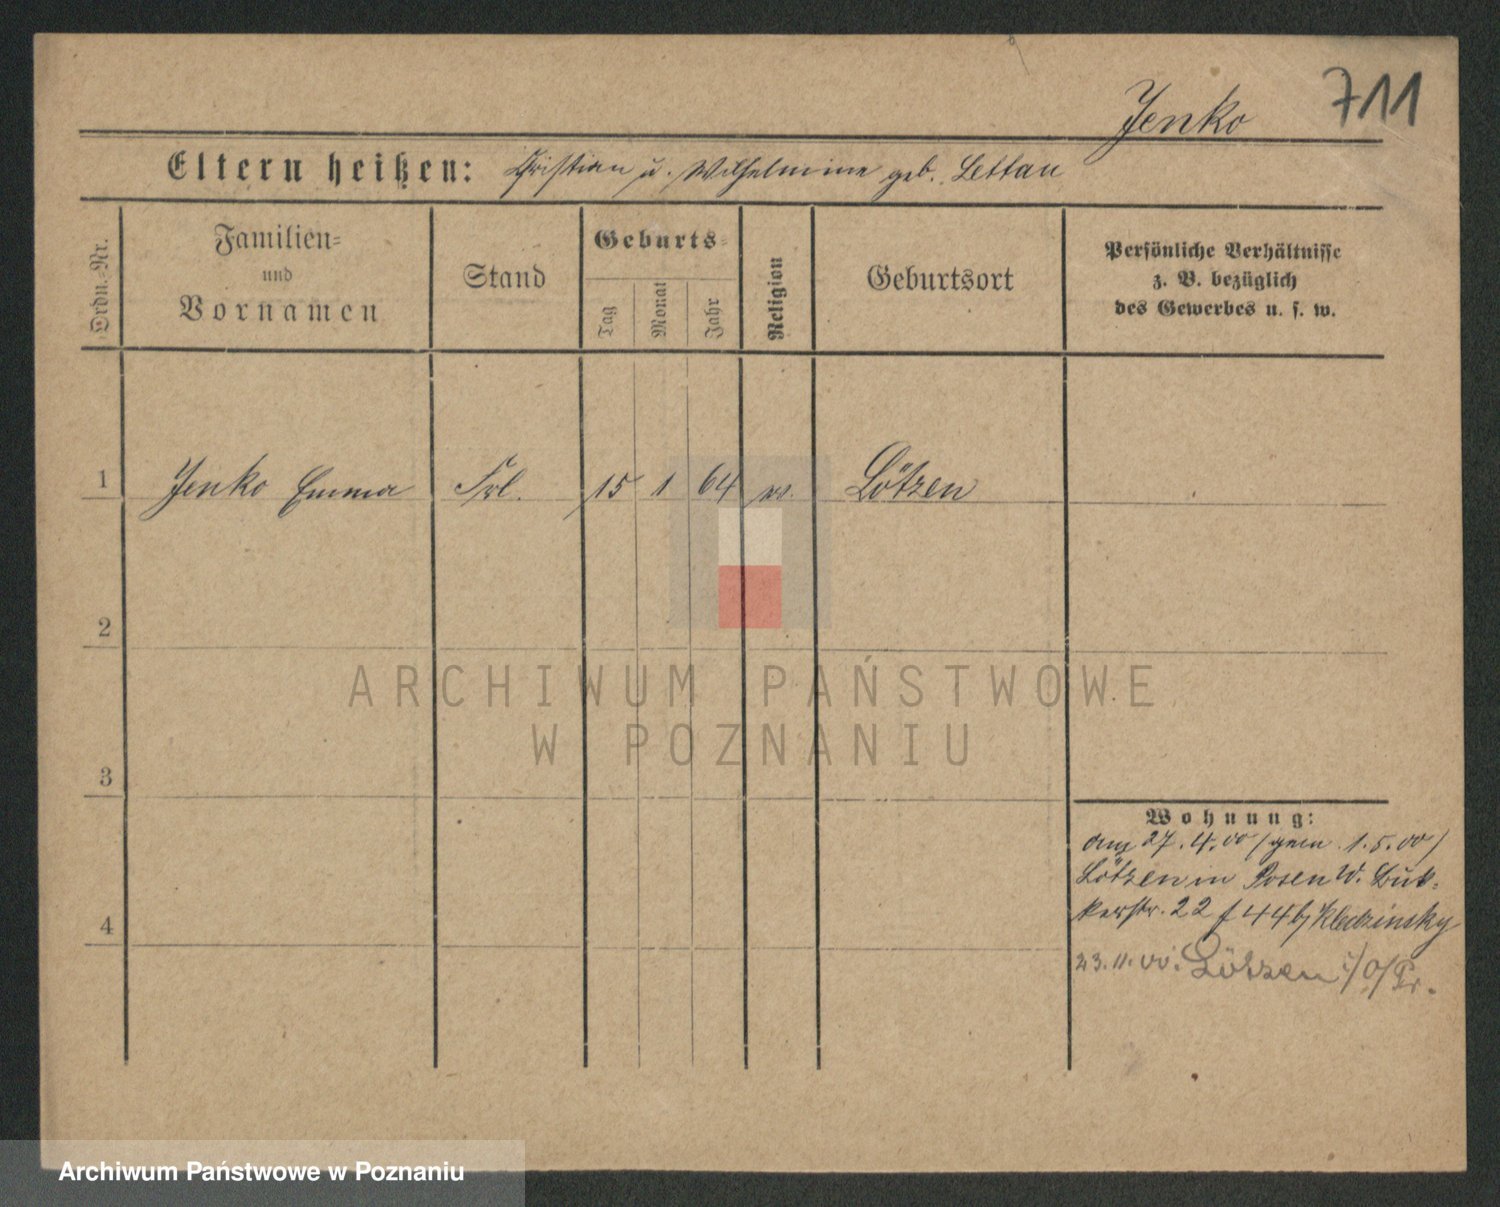 711
Jenko
Eltern heißen: Christian u. Wilhelmine geb. Lettau
Ordn.-Nr.
Familien-
und
Vornamen
Stand
Geburts-
Tag
Monat
Jahr
Religion
Geburtsort
Persönliche Verhältnisse
z. B. bezüglich
des Gewerbes u. s. w.
1 Jenko Emma Frl. 15 1 64 Lötzen
2
3
4
Wohnung:
27.4.00 / gem. 1.5.00 /
Lötzen in Posen W. Buk-
kerstr. 22 44 b/ Kledzinsky
23.11.00. Lötzen i/O/Pr.
ARCHIWUM PAŃSTWOWE
W POZNANIU
Archiwum Państwowe w Poznaniu